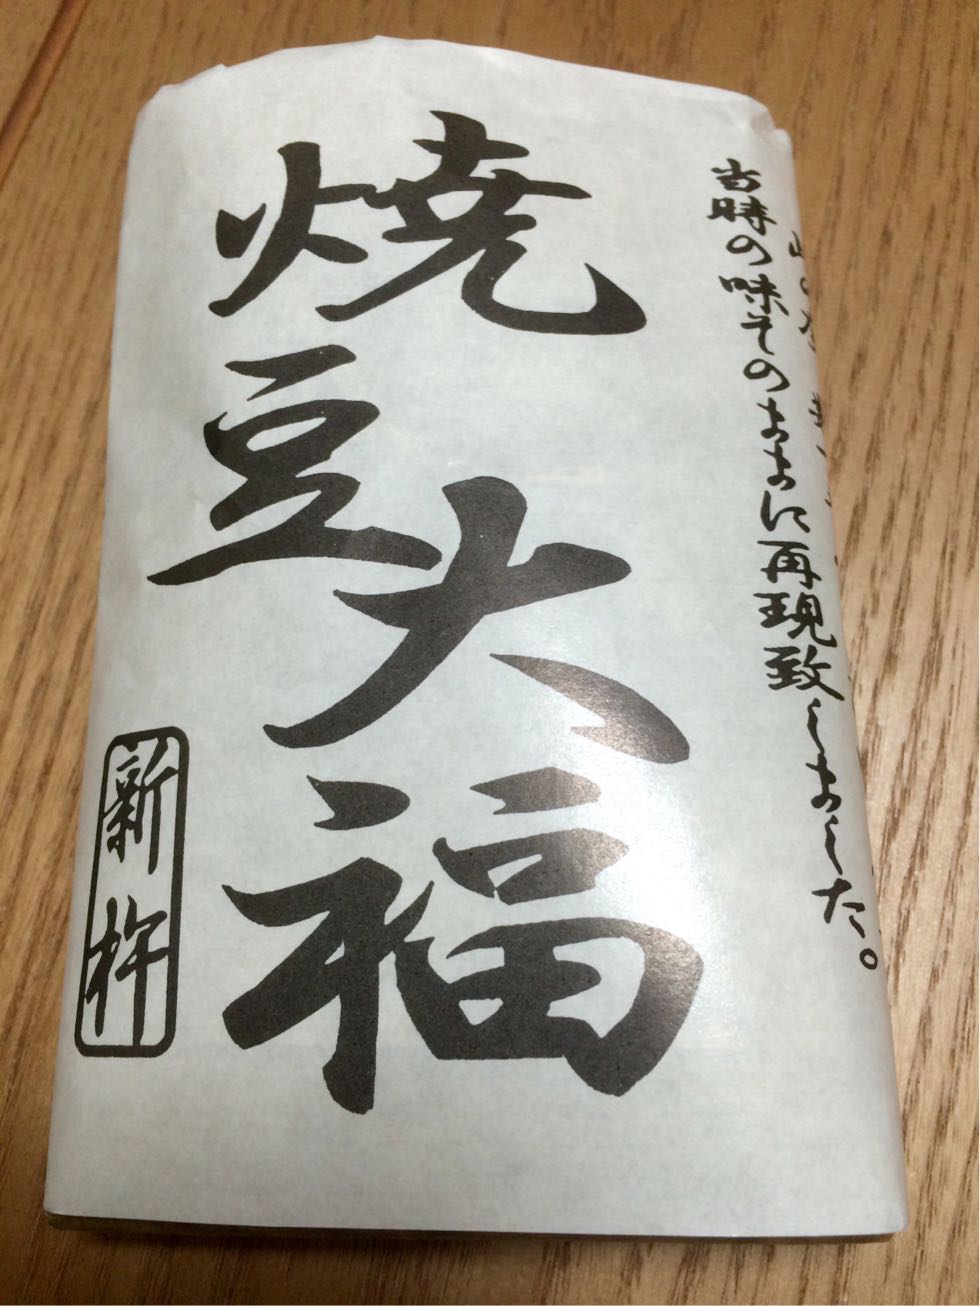 当時の味そのままに再現致しました。
焼豆大福
新杵